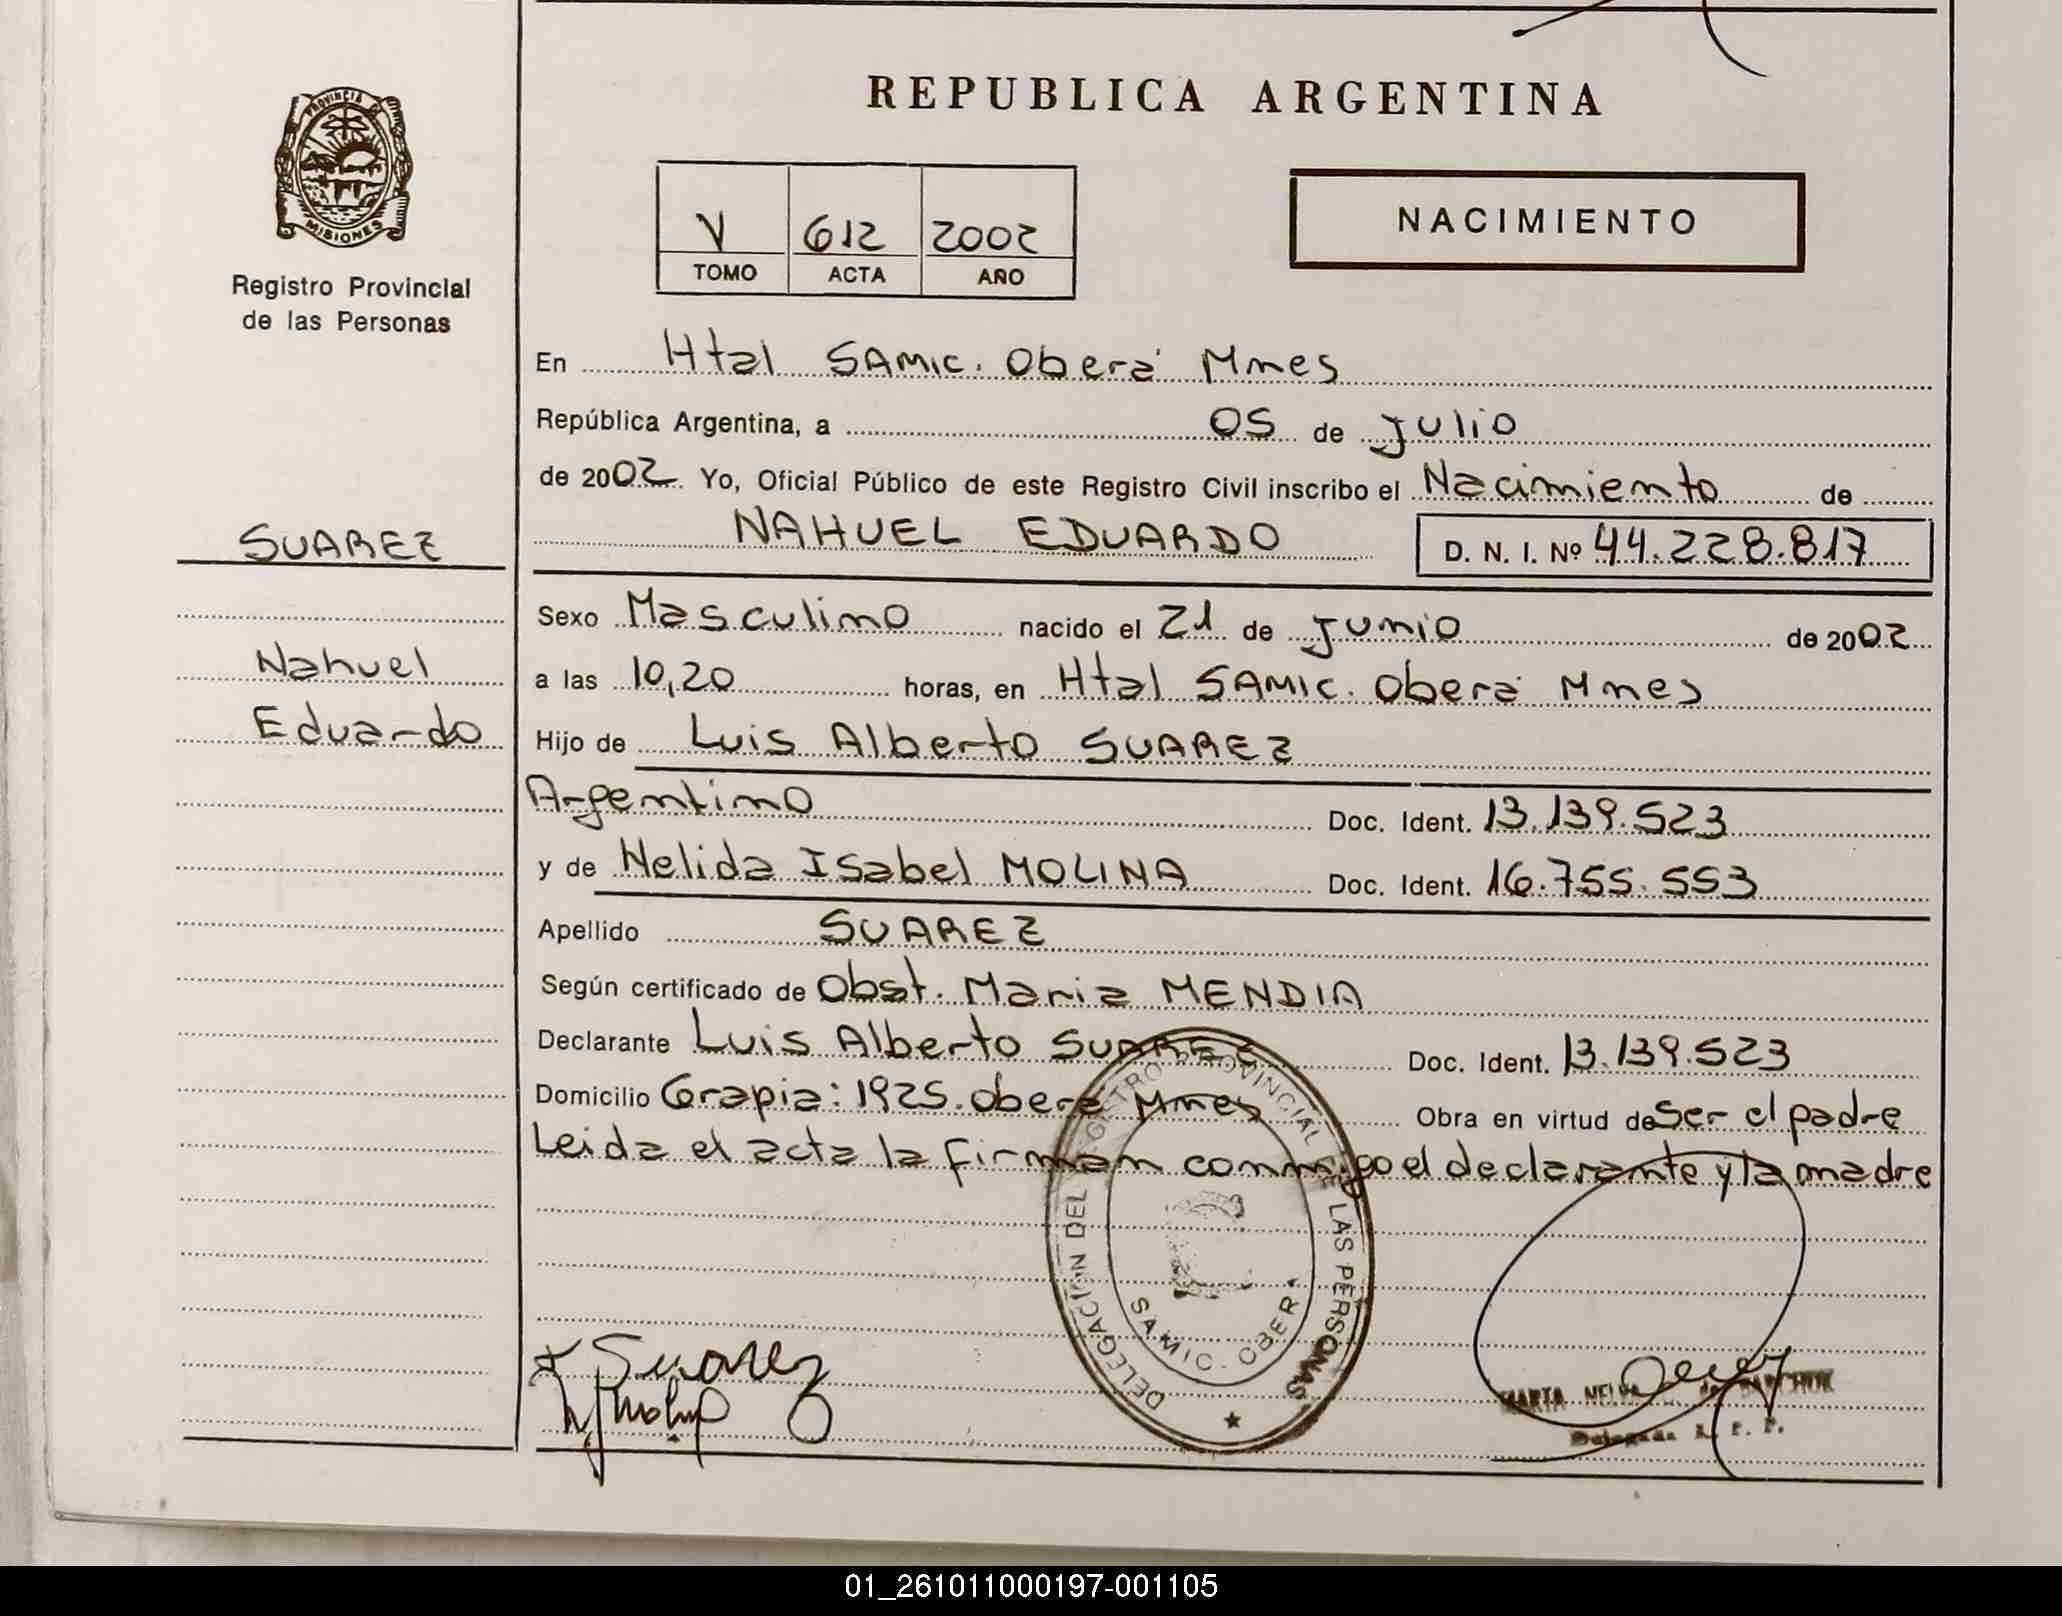 REPUBLICA ARGENTINA
PROVINCIA DE MISIONES
Registro Provincial
de las Personas
V 612 2002
TOMO ACTA AÑO
NACIMIENTO
En Htal SAMIC. Oberá Mnes
República Argentina, a 05 de Julio
de 2002 Yo, Oficial Público de este Registro Civil inscribo el Nacimiento de
SUAREZ
NAHUEL EDUARDO D. N. I. Nº 44.228.817
Sexo Masculino nacido el 21 de Junio de 2002
Nahuel
a las 10,20 horas, en Htal SAMIC. Oberá Mnes
Eduardo
Hijo de Luis Alberto SUAREZ
Argentino Doc. Ident. 13.139.523
y de Nelida Isabel MOLINA Doc. Ident. 16.755.553
Apellido SUAREZ
Según certificado de Obst. Maria MENDIA
Declarante Luis Alberto SUAREZ Doc. Ident. 13.139.523
Domicilio Grapia: 1925. Oberá Mnes Obra en virtud de Ser el padre
Leida el acta la firman conmigo el declarante y la madre
DELEGACION DEL REGISTRO PROVINCIAL DE LAS PERSONAS
SAMIC. OBERA
Suarez
MARTA NELVA de
Delegada R. P. P.
01_261011000197-001105